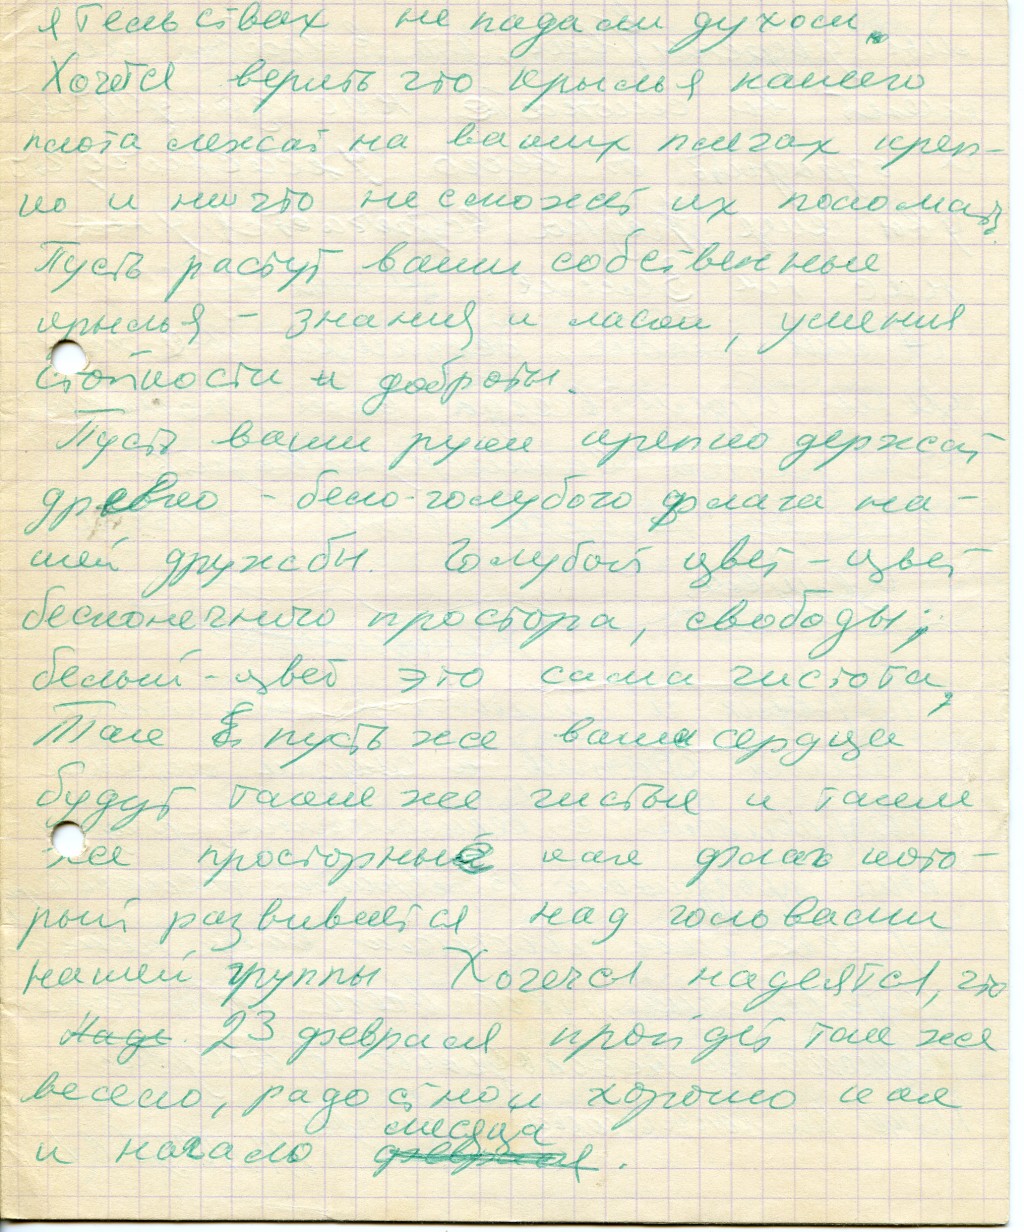 ятельствах не падали духом.
Хочется верить что крылья нашего
плота лежат на ваших плечах креп-
ко и ничто не сможет их поломать.
Пусть растут ваши собственные
крылья - знания и ласки, умения
стойкости и доброты.
Пусть ваши руки крепко держат
древко - бело-голубого флага на-
шей дружбы. Голубой цвет - цвет
бесконечного простора, свободы,
белый - цвет это сама чистота,
Так пусть же ваши сердца
будут такие же чистые и такие
же просторные как флаг кото-
рый развивается над головами
нашей группы Хочется надеятся, что
Наде. 23 февраля пройдет так же
весело, радостно и хорошо как
месяца
и начало февраля.